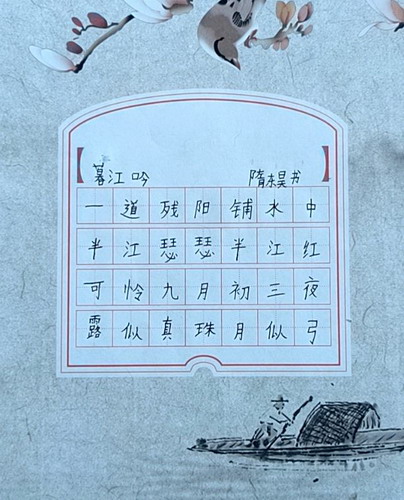 暮江吟 隋棋书
一道残阳铺水中
半江瑟瑟半江红
可怜九月初三夜
露似真珠月似弓